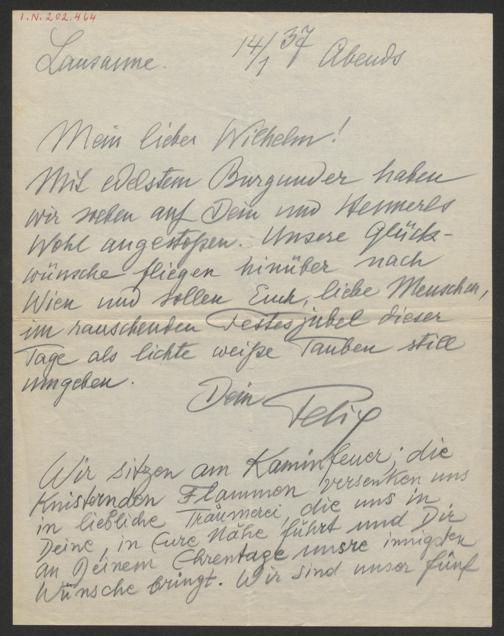 I.N. 202.464
Lausanne. 14/1 37 Abends
Mein lieber Wilhelm!
Mit edelstem Burgunder haben
wir soeben auf Dein und Hennerls
Wohl angestoßen. Unsere Glück-
wünsche fliegen hinüber nach
Wien und sollen Euch, liebe Menschen,
im rauschenden Festesjubel dieser
Tage als lichte weiße Tauben still
umgeben.
Dein Felix
Wir sitzen am Kaminfeuer; die
Knisternden Flammen versenken uns
in liebliche Träumerei, die uns in
Deine, in Eure Nähe führt und Dir
an Deinem Ehrentage unsre innigsten
Wünsche bringt. Wir sind unser fünf